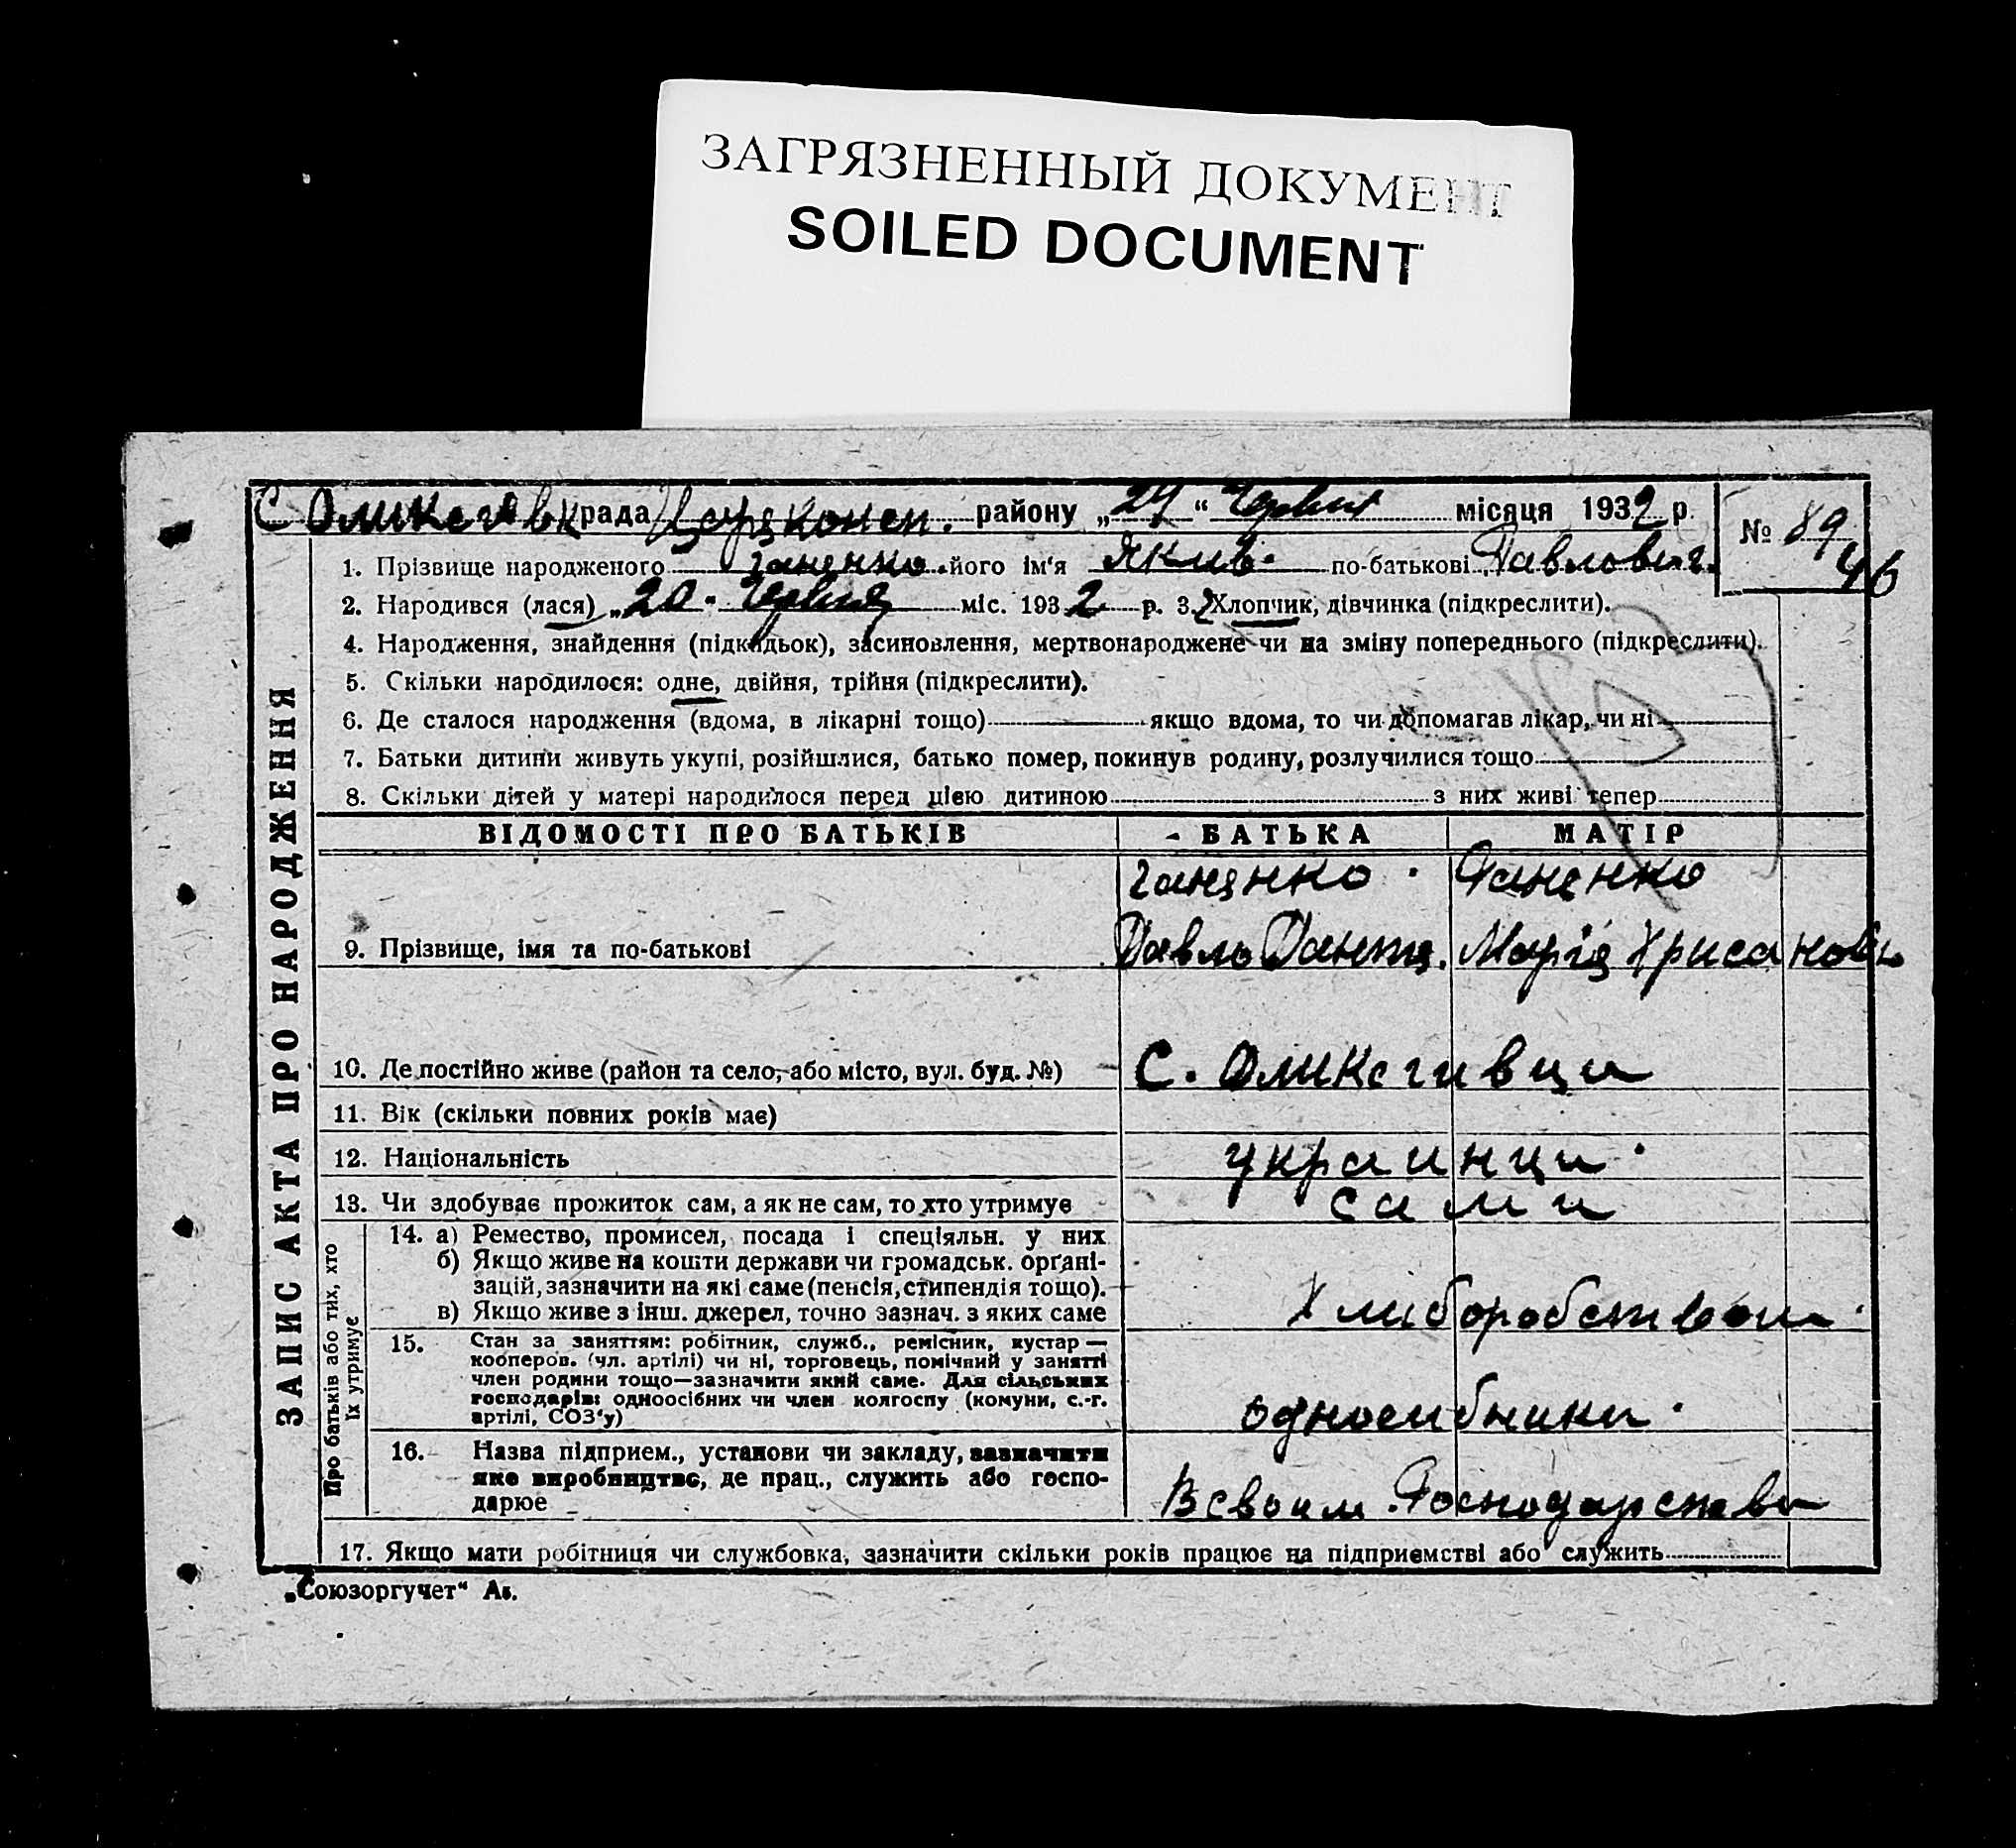 ЗАГРЯЗНЕННЫЙ ДОКУМЕНТ
SOILED DOCUMENT
С рада район у „ “ місяця 1932 р. № 89
46
1. Прізвище народженого Ганенко. його ім'я Якив. по-батькові Павлович.
2. Народився (лася) „20“ Червня міс. 1932 р. 3. Хлопчик, дівчинка (підкреслити).
4. Народження, знайдення (підкидьок), засиновлення, мертвонароджене чи на зміну попереднього (підкреслити).
5. Скільки народилося: одне, двійня, трійня (підкреслити).
6. Де сталося народження (вдома, в лікарні тощо) якщо вдома, то чи допомагав лікар, чи ні
7. Батьки дитини живуть укупі, розійшлися, батько помер, покинув родину, розлучилися тощо
8. Скільки дітей у матері народилося перед цією дитиною з них живі тепер
ЗАПИС АКТА ПРО НАРОДЖЕННЯ
ВІДОМОСТІ ПРО БАТЬКІВ БАТЬКА МАТІР
Ганенко. Ганенко
9. Прізвище, імя та по-батькові Павло Марія
10. Де постійно живе (район та село, або місто, вул. буд. №) С.
11. Вік (скільки повних років має)
12. Національність украинци.
13. Чи здобуває прожиток сам, а як не сам, то хто утримує сами
Про батьків або тих, хто
їх утримує
14. а) Ремество, промисел, посада і спеціяльн. у них
б) Якщо живе на кошти держави чи громадськ. орґані-
зацій, зазначити на які саме (пенсія, стипендія тощо).
в) Якщо живе з інш. джерел, точно зазнач. з яких саме Хлиборобством.
15. Стан за заняттям: робітник, служб., ремісник, кустар —
кооперов. (чл. артілі) чи ні, торговець, помічний у занятті
член родини тощо—зазначити який саме. Для сільських
господарів: одноосібних чи член колгоспу (комуни, с.-г.
артілі, СОЗ'у) односибники.
16. Назва підприєм., установи чи закладу, зазначити
яке виробництво, де прац., служить або госпо-
дарюе В своим Господарстви
17. Якщо мати робітниця чи службовка, зазначити скільки років працює на підприємстві або служить
„Союзоргучет“